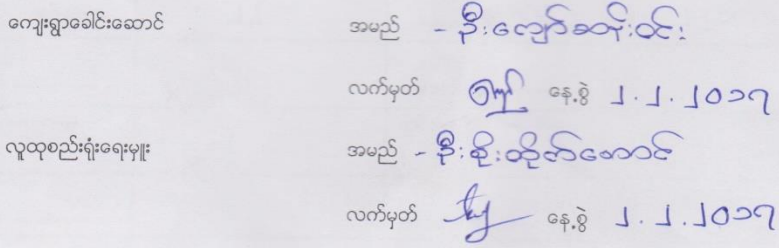 ကျေးရွာခေါင်းဆောင် အမည် - ဦးကျော်ဆန်းဝင်း
လက်မှတ် နေ့စွဲ ၂.၂.၂၀၁၇
လူထုစည်းရုံးရေးမှူး အမည် - ဦးစိုးထိုက်အောင်
လက်မှတ် နေ့စွဲ ၂.၂.၂၀၁၇